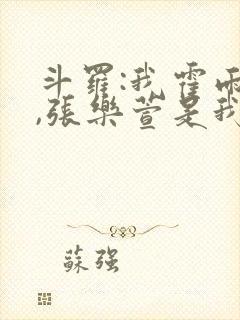 斗羅:我霍雨
,張樂萱是我
蘇强